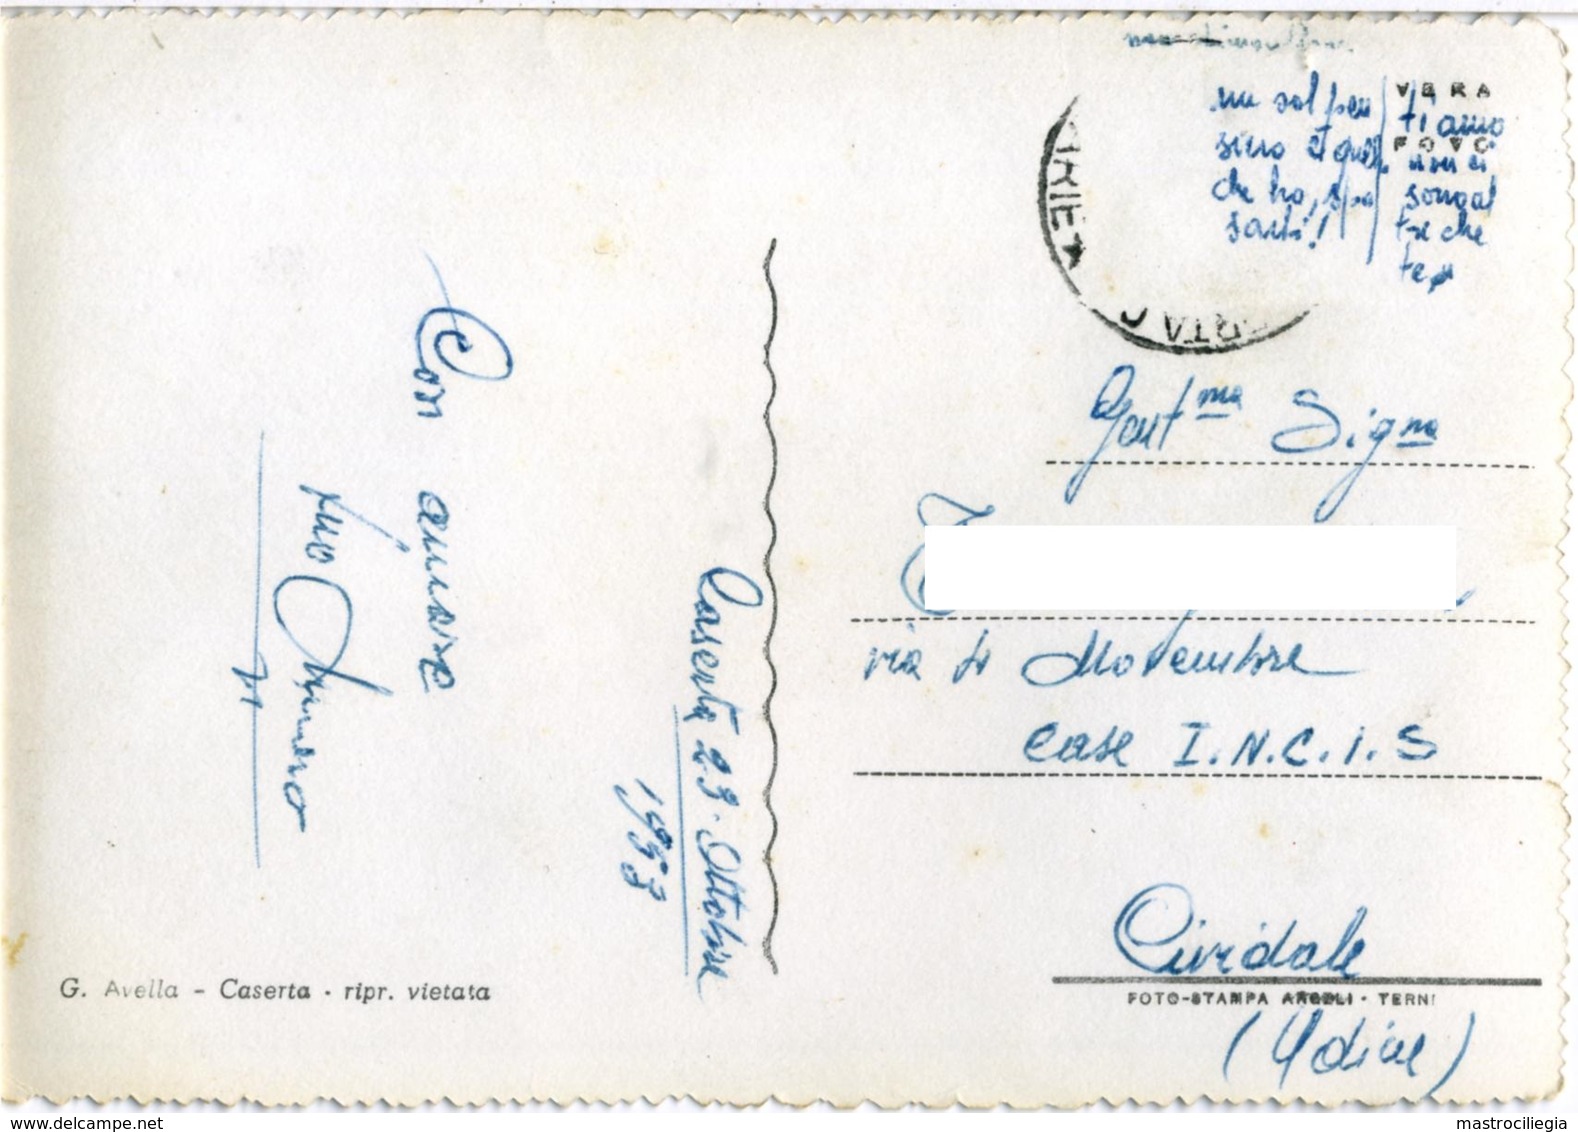 un sol pen
siero è quello
che ho, spo
sarti!
ti amo
non ci
sono al
tre che
te
VERA
FOTO
Gent.ma Sig.na
via 4 Novembre
Case I.N.C.I.S
Cividale
(Udine)
FOTO-STAMPA ANGELI - TERNI
Caserta 23. Ottobre
1953
Con amore
tuo
G. Avella - Caserta - ripr. vietata
www.delcampe.net
mastrociliegia